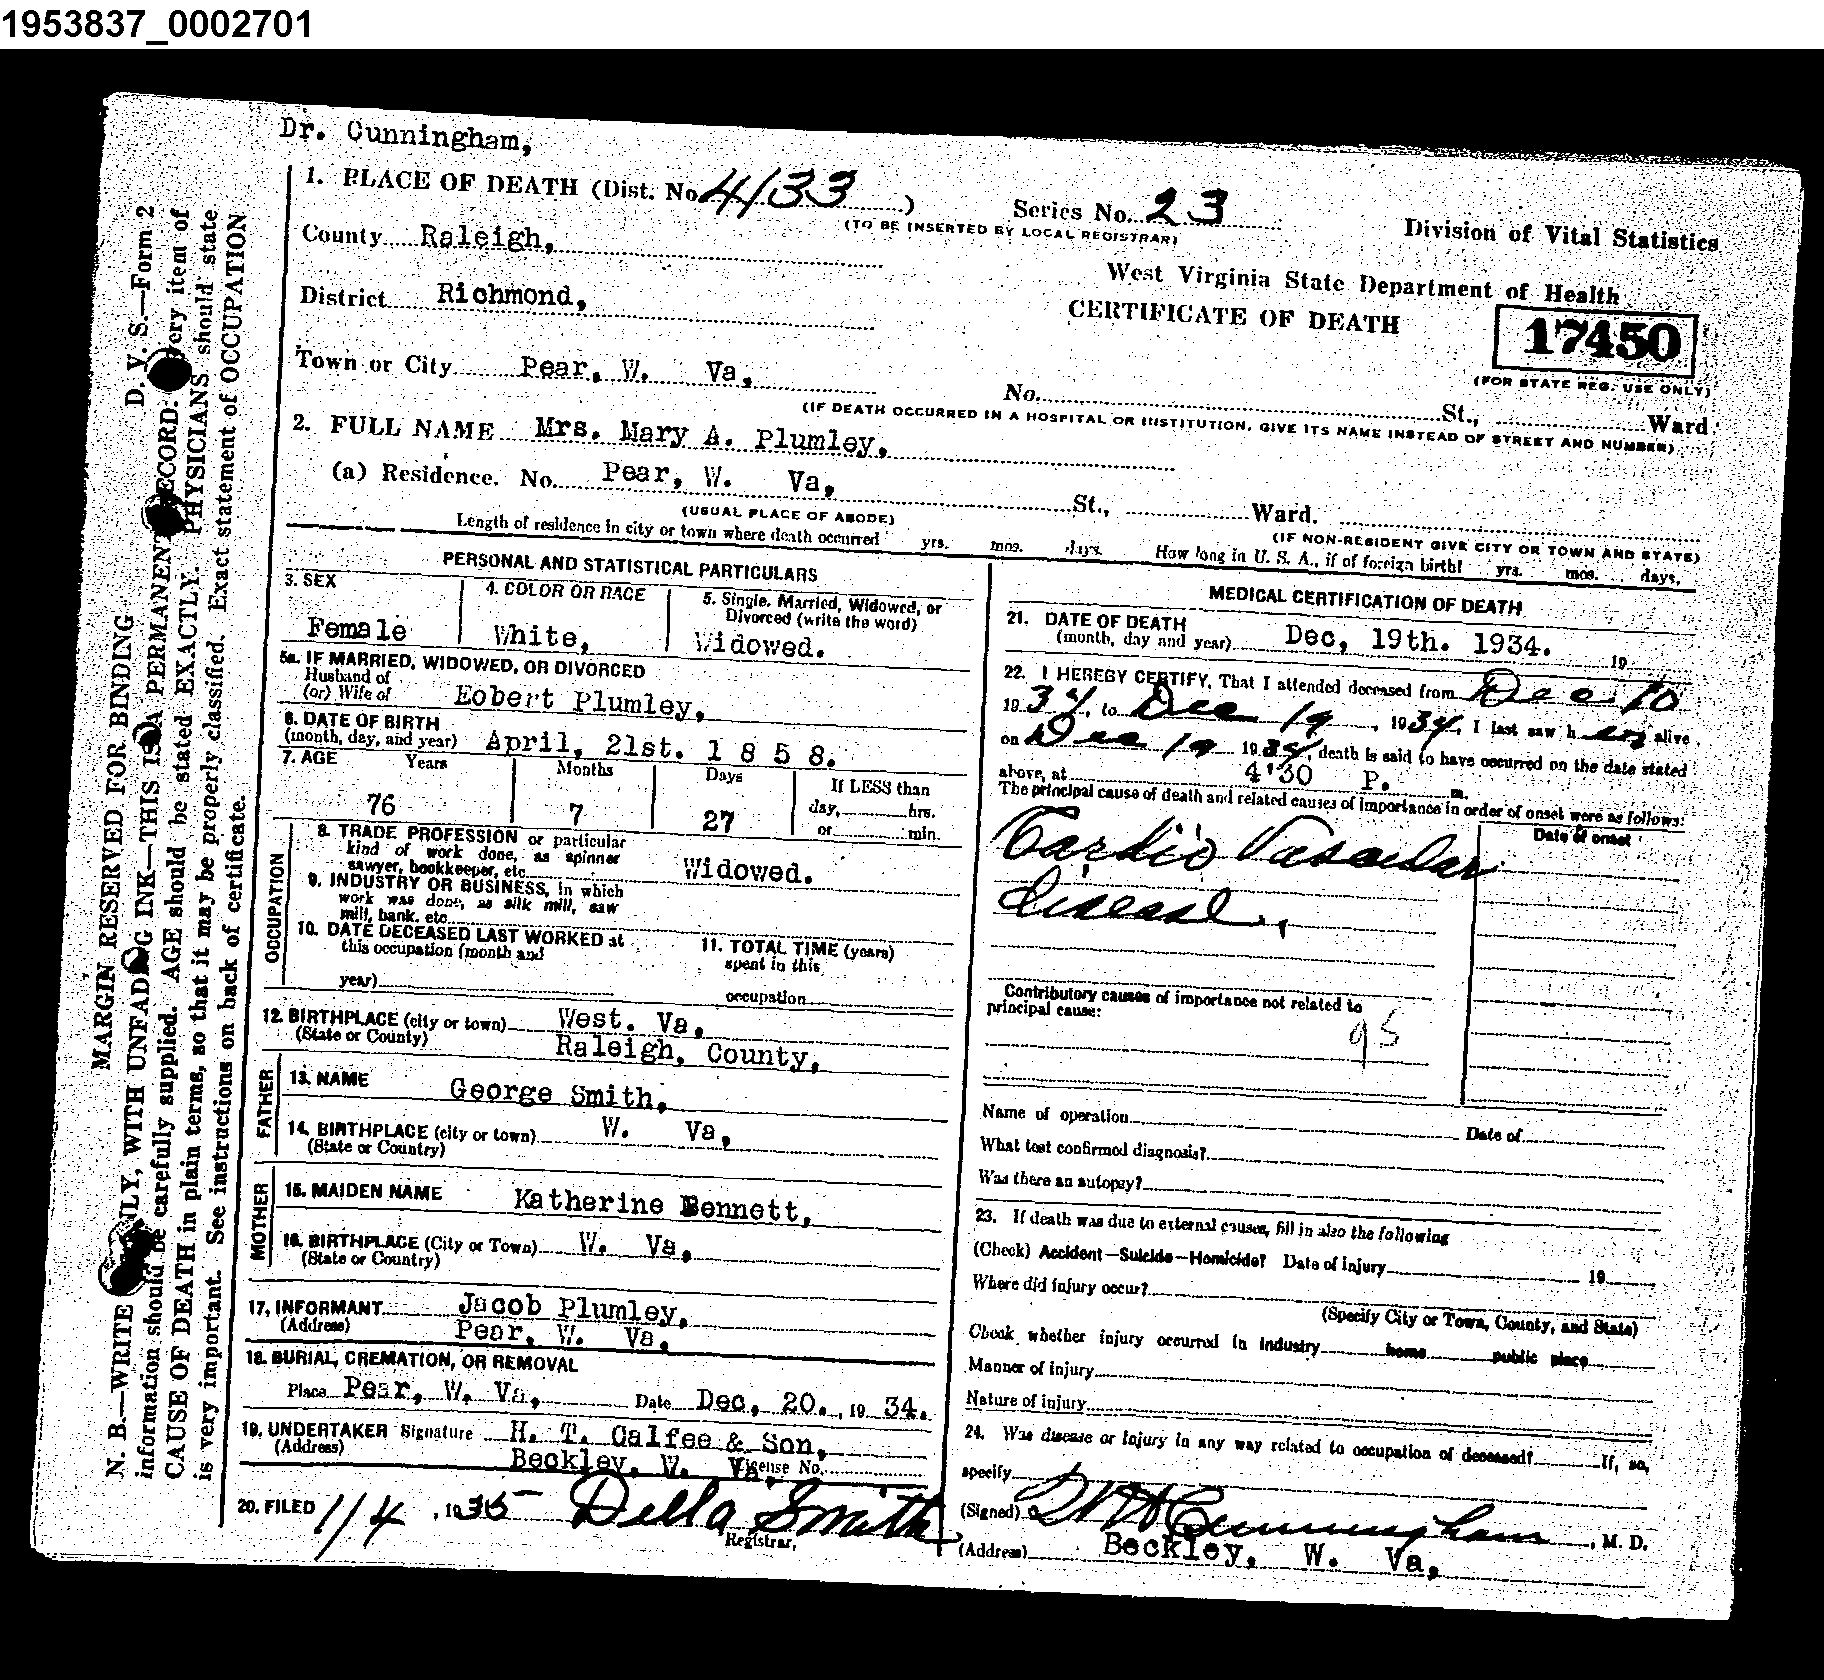 1953837_0002701
Dr. Cunningham,
1. PLACE OF DEATH (Dist. No. 4133 )
Series No. 23
(TO BE INSERTED BY LOCAL REGISTRAR)
County Raleigh,
District Richmond,
Town or City Pear, W. Va,
Division of Vital Statistics
West Virginia State Department of Health
CERTIFICATE OF DEATH
17450
(FOR STATE REG. USE ONLY)
No. St., Ward
(IF DEATH OCCURRED IN A HOSPITAL OR INSTITUTION, GIVE ITS NAME INSTEAD OF STREET AND NUMBER)
2. FULL NAME Mrs. Mary A. Plumley,
(a) Residence. No. Pear, W. Va, St., Ward.
(USUAL PLACE OF ABODE)
(IF NON-RESIDENT GIVE CITY OR TOWN AND STATE)
Length of residence in city or town where death occurred yrs. mos. days. How long in U. S. A., if of foreign birth! yrs. mos. days,
PERSONAL AND STATISTICAL PARTICULARS
3. SEX
Female
4. COLOR OR RACE
White,
5. Single, Married, Widowed, or
Divorced (write the word)
Widowed.
5a. IF MARRIED, WIDOWED, OR DIVORCED
Husband of
(or) Wife of Eobert Plumley,
6. DATE OF BIRTH
(month, day, and year) April, 21st. 1 8 5 8.
7. AGE Years Months Days If LESS than
76 7 27
day, hrs.
or min.
OCCUPATION
8. TRADE PROFESSION or particular
kind of work done, as spinner
sawyer, bookkeeper, etc. Widowed.
9. INDUSTRY OR BUSINESS, in which
work was done, as silk mill, saw
mill, bank, etc.
10. DATE DECEASED LAST WORKED at
this occupation (month and
year)
11. TOTAL TIME (years)
spent in this
occupation
12. BIRTHPLACE (city or town) West. Va,
(State or County) Raleigh, County,
FATHER
13. NAME George Smith,
14. BIRTHPLACE (city or town) W. Va,
(State or Country)
MOTHER
15. MAIDEN NAME Katherine Bennett,
16. BIRTHPLACE (City or Town) W. Va,
(State or Country)
17. INFORMANT Jacob Plumley,
(Address) Pear, W. Va,
18. BURIAL, CREMATION, OR REMOVAL
Place Pear, W, Va, Date Dec, 20. , 19 34.
19. UNDERTAKER Signature H. T. Calfee & Son,
(Address) Beckley, W. Va, License No.
20. FILED 1/4 , 1935 Della Smith
Registrar,
MEDICAL CERTIFICATION OF DEATH
21. DATE OF DEATH
(month, day and year) Dec, 19th. 1934. 19
22. I HEREBY CERTIFY, That I attended deceased from Dec 10
1934, to Dec 19 , 1934, I last saw her alive
on Dec 19 1934, death is said to have occurred on the date stated
above, at 4:30 P. m.
The principal cause of death and related causes of importance in order of onset were as follows:
Date of onset
Cardio Vascular
Disease,
Contributory causes of importance not related to
principal cause:
95
Name of operation Date of
What test confirmed diagnosis?
Was there an autopsy?
23. If death was due to external causes, fill in also the following
(Check) Accident—Suicide—Homicide? Date of injury 19
Where did injury occur?
(Specify City or Town, County, and State)
Check whether injury occurred in industry home public place
Manner of injury
Nature of injury
24. Was disease or injury in any way related to occupation of deceased? If, so,
specify
(Signed) Cunningham , M. D.
(Address) Beckley, W. Va,
D. V. S.—Form 2
MARGIN RESERVED FOR BINDING
N. B.—WRITE PLAINLY, WITH UNFADING INK—THIS IS A PERMANENT RECORD. Every item of
information should be carefully supplied. AGE should be stated EXACTLY. PHYSICIANS should state
CAUSE OF DEATH in plain terms, so that it may be properly classified. Exact statement of OCCUPATION
is very important. See instructions on back of certificate.